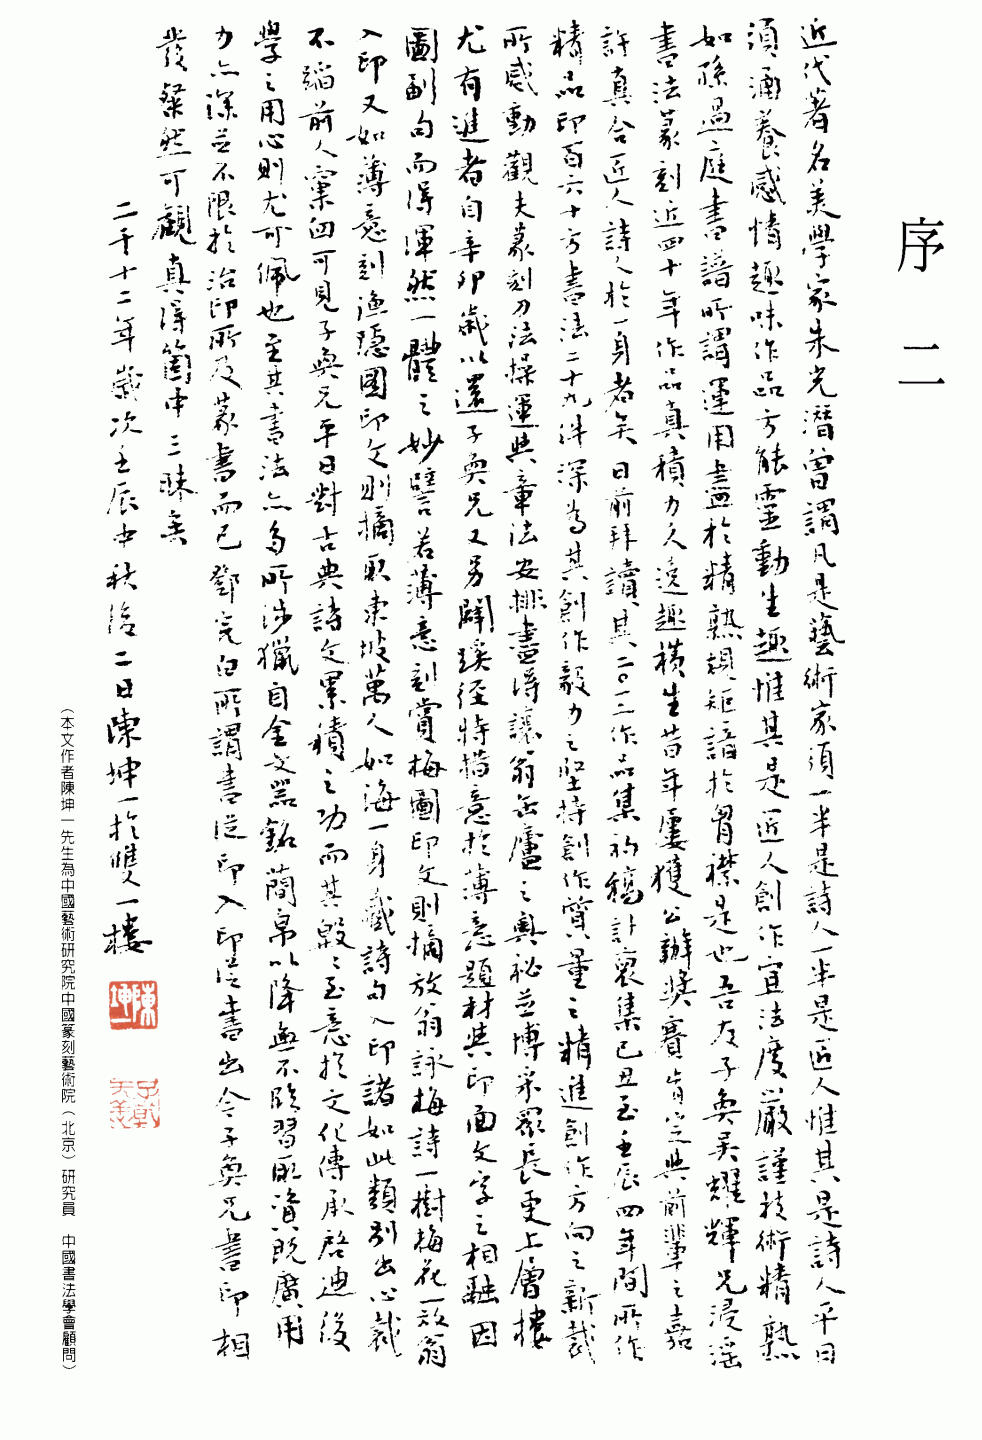 序二
近代著名美學家朱光潛曾謂凡是藝術家須一半是詩人一半是匠人惟其是詩人平日
須涵養感情趣味作品方能靈動生趣惟其是匠人創作宜法度嚴謹技術精熟
如孫過庭書譜所謂運用盡於精熟規矩諳於胸襟是也吾友子奐吳耀輝兄浸淫
書法篆刻近四十年作品真積力久逸趣橫生昔年屢獲公辦獎賽肯定與前輩之嘉
許真合匠人詩人於一身者矣日前拜讀其二〇一二作品集初稿計裒集己丑至壬辰四年間所作
精品印百六十方書法二十九件深為其創作毅力之堅持創作質量之精進創作方向之新裁
所感動觀夫篆刻刀法操運與章法安排盡得讓翁缶廬之奧祕並博采眾長更上層樓
尤有進者自辛卯歲以還子奐兄又另闢蹊徑特措意於薄意題材與印面文字之相融因
圖副句而得渾然一體之妙譬若薄意刻賞梅圖印文則摘放翁詠梅詩一樹梅花一放翁
入印又如薄意刻漁隱圖印文則摘取東坡萬人如海一身藏詩句入印諸如此類別出心裁
不蹈前人窠臼可見子奐兄平日對古典詩文累積之功而其殷殷至意於文化傳承啓迪後
學之用心則尤可佩也至其書法亦多所涉獵自金文器銘簡帛以降無不臨習取資既廣用
力亦深並不限於治印所及篆書而已鄧完白所謂書從印入印從書出今子奐兄書印相
發粲然可觀真得箇中三昧矣
二千十二年歲次壬辰中秋後二日陳坤一於雙一樓
陳坤一
（本文作者陳坤一先生為中國藝術研究院中國篆刻藝術院（北京）研究員　中國書法學會顧問）